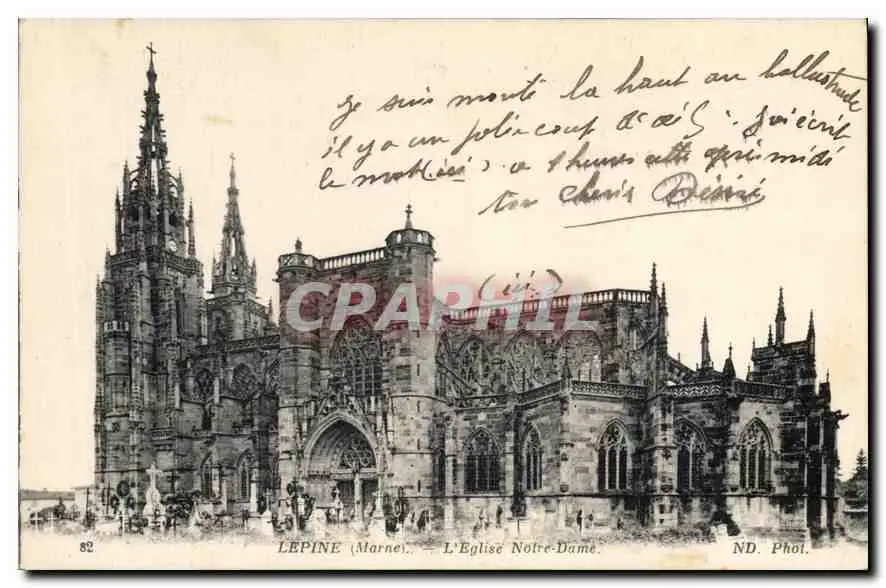 Je suis monté la haut au ballustrade
il y a un joli coup d'œil. J'ai écrit
le mot (ici) a 1 heures après midi
ton cheris Désiré
(ici)
CPARAMA
PHIL
82
LEPINE (Marne). - L'Eglise Notre-Dame.
ND. Phot.